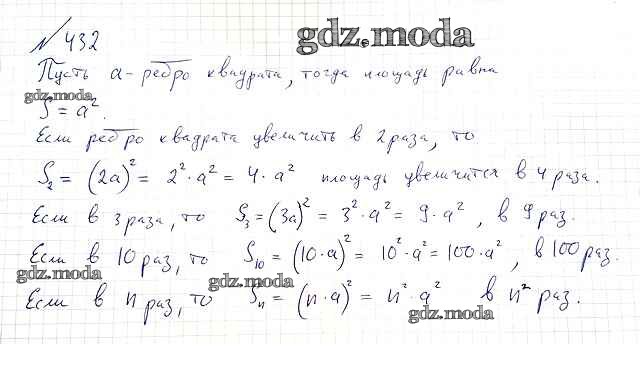 № 432 gdz.moda
Пусть a - ребро квадрата, тогда площадь равна
gdz.moda
S = a².
Если ребро квадрата увеличить в 2 раза, то
S₂ = (2a)² = 2²·a² = 4·a² площадь увеличится в 4 раза.
Если в 3 раза, то S₃ = (3a)² = 3²·a² = 9·a², в 9 раз.
Если в 10 раз, то S₁₀ = (10·a)² = 10²·a² = 100·a², в 100 раз.
gdz.moda gdz.moda
Если в n раз, то Sₙ = (n·a)² = n²·a² в n² раз.
gdz.moda